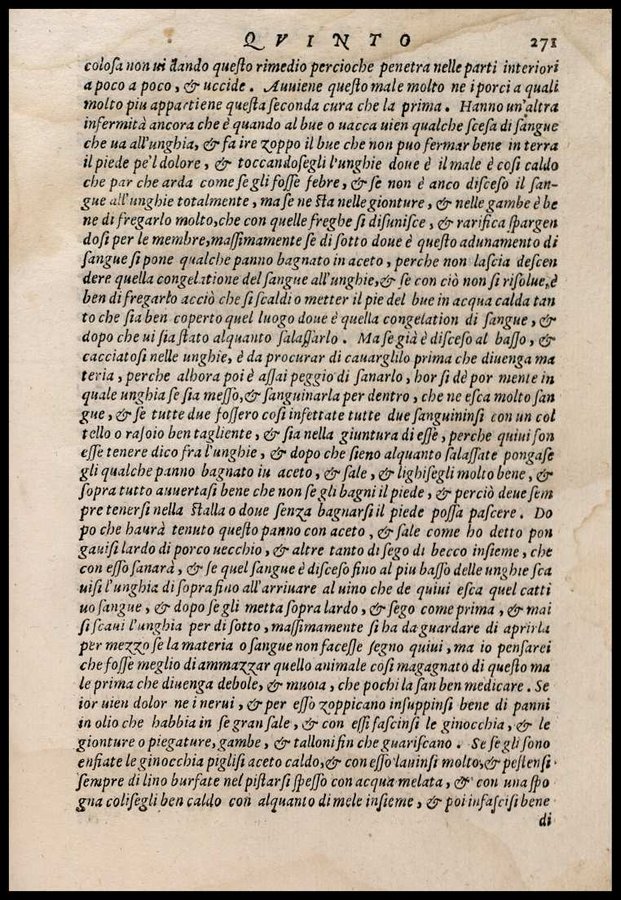 QVINTO 271
colosa non ui dando questo rimedio percioche penetra nelle parti interiori
a poco a poco, & uccide. Auuiene questo male molto ne i porci a quali
molto piu appartiene questa seconda cura che la prima. Hanno un'altra
infermità ancora che è quando al bue o uacca uien qualche scesa di sangue
che ua all'unghia, & fa ire zoppo il bue che non puo fermar bene in terra
il piede pe'l dolore, & toccandosegli l'unghie doue è il male è cosi caldo
che par che arda come se gli fosse febre, & se non è anco disceso il san-
gue all'unghie totalmente, ma se ne sta nelle gionture, & nelle gambe è be
ne di fregarlo molto, che con quelle freghe si disunisce, & rarifica spargen
dosi per le membre, massimamente se di sotto doue è questo adunamento di
sangue si pone qualche panno bagnato in aceto, perche non lascia descen
dere quella congelatione del sangue all'unghie, & se con ciò non si risolue, è
ben di fregarlo acciò che si scaldi o metter il pie del bue in acqua calda tan
to che sia ben coperto quel luogo doue è quella congelation di sangue, &
dopo che ui sia stato alquanto salassarlo. Ma se già è disceso al basso, &
cacciatosi nelle unghie, è da procurar di cauarglilo prima che diuenga ma
teria, perche alhora poi è assai peggio di sanarlo, hor si dè por mente in
quale unghia se sia messo, & sanguinarla per dentro, che ne esca molto san
gue, & se tutte due fossero cosi infettate tutte due sanguininsi con un col
tello o rasoio ben tagliente, & sia nella giuntura di esse, perche quiui son
esse tenere dico fra l'unghie, & dopo che sieno alquanto salassate pongase
gli qualche panno bagnato in aceto, & sale, & lighisegli molto bene, &
sopra tutto auuertasi bene che non se gli bagni il piede, & perciò deue sem
pre tenersi nella stalla o doue senza bagnarsi il piede possa pascere. Do
po che haurà tenuto questo panno con aceto, & sale come ho detto pon
gauisi lardo di porco uecchio, & altre tanto di sego di becco insieme, che
con esso sanarà, & se quel sangue è disceso fino al piu basso delle unghie sca
uisi l'unghia di sopra fino all'arriuare al uino che de quiui esca quel catti
uo sangue, & dopo se gli metta sopra lardo, & sego come prima, & mai
si scaui l'unghia per di sotto, massimamente si ha da guardare di aprirla
per mezzo se la materia o sangue non facesse segno quiui, ma io pensarei
che fosse meglio di ammazzar quello animale cosi magagnato di questo ma
le prima che diuenga debole, & muoia, che pochi la san ben medicare. Se
ior uien dolor ne i nerui, & per esso zoppicano insuppinsi bene di panni
in olio che habbia in se gran sale, & con essi fascinsi le ginocchia, & le
gionture o piegature, gambe, & talloni fin che guariscano. Se se gli sono
enfiate le ginocchia piglisi aceto caldo, & con esso lauinsi molto, & pestensi
sempre di lino bursate nel pistarsi spesso con acqua melata, & con una spo
gna colisegli ben caldo con alquanto di mele insieme, & poi infascisi bene
di